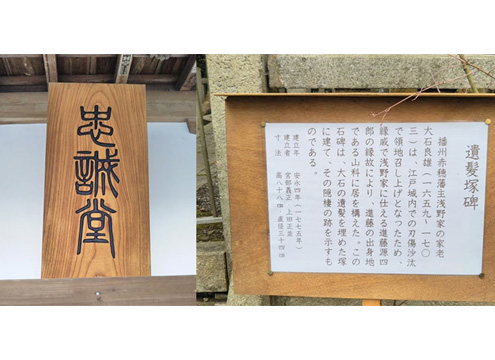 忠誠堂
遺髪塚碑
播州赤穂藩主浅野家の家老
大石良雄(一六五九‐一七〇
三)は、江戸城内での刃傷沙汰
で領地召し上げとなったため、
縁戚で浅野家に仕える進藤源四
郎の縁故により、進藤の出身地
である山科に居を構えた。この
石碑は、大石の遺髪を埋めた塚
に建て、その隠棲の跡を示すも
のである。
建立年 安永四年(一七七五年)
建立者 宮部義正、上田正宣
寸法 高八十八㎝ 直径三十四㎝